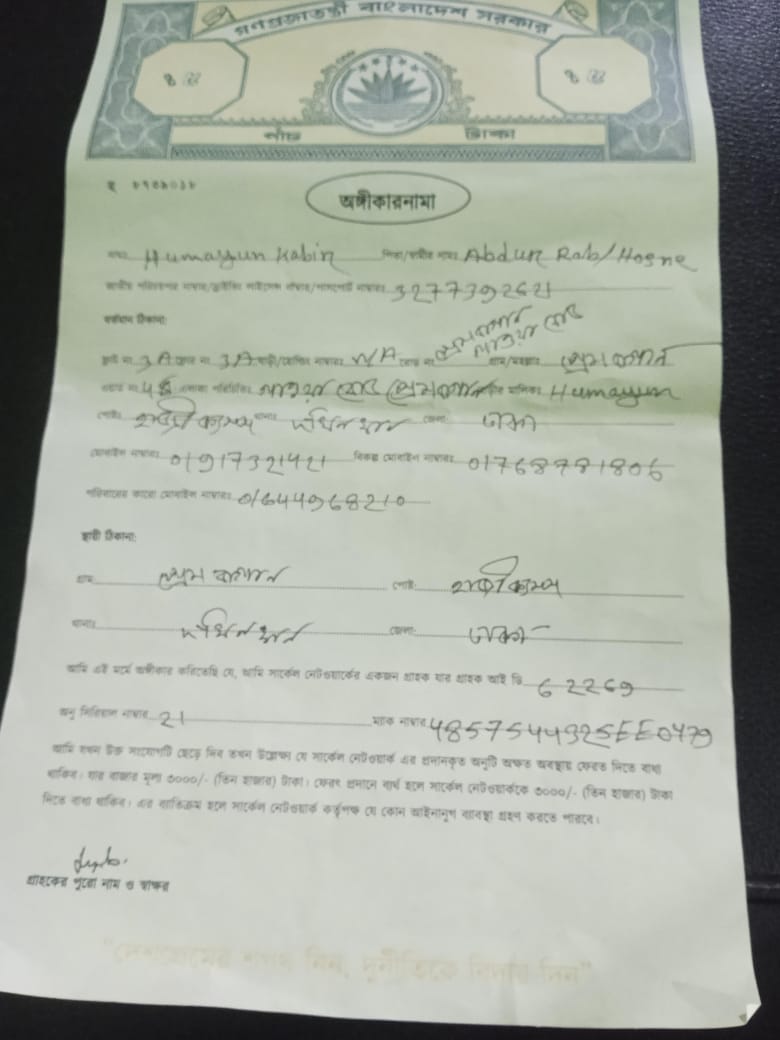 গণপ্রজাতন্ত্রী বাংলাদেশ সরকার
পাঁচ টাকা
অঙ্গীকারনামা
নামঃ Humayun Kabir পিতা/স্বামীর নামঃ Abdur Rab/Hosne
জাতীয় পরিচয়পত্র নাম্বার/ড্রাইভিং লাইসেন্স নাম্বার/পাসপোর্ট নাম্বারঃ 3277392621
বর্তমান ঠিকানা:
ফ্লাট নং 3A ফ্লোর নং 3A বাড়ী/হোল্ডিং নাম্বারঃ N/A রোড নং প্রেম বাগান রোড গ্রাম/মহল্লাঃ প্রেম বাগান
ওয়ার্ড নং এলাকা পরিচিতিঃ রোড প্রেমবাগান মালিকঃ Humayun
পোষ্টঃ হাজী ক্যাম্প থানাঃ দক্ষিন খান জেলাঃ ঢাকা
মোবাইল নাম্বারঃ 01917321421 বিকল্প মোবাইল নাম্বারঃ 01768781806
পরিবারের কারো মোবাইল নাম্বারঃ 01644968210
স্থায়ী ঠিকানা:
গ্রাম প্রেম বাগান পোষ্ট: হাজী ক্যাম্প
থানাঃ দক্ষিন খান জেলা: ঢাকা
আমি এই মর্মে অঙ্গীকার করিতেছি যে, আমি সার্কেল নেটওয়ার্কের একজন গ্রাহক যার গ্রাহক আই ডি 62269
অনু সিরিয়াল নাম্বার 21 ম্যাক নাম্বার 48575444325EE0479
আমি যখন উক্ত সংযোগটি ছেড়ে দিব তখন উল্লেক্ষ্য যে সার্কেল নেটওয়ার্ক এর প্রদানকৃত অনুটি অক্ষত অবস্থায় ফেরত দিতে বাধ্য
থাকিব। যার বাজার মূল্য ৩০০০/- (তিন হাজার) টাকা। ফেরৎ প্রদানে ব্যর্থ হলে সার্কেল নেটওয়ার্ককে ৩০০০/- (তিন হাজার) টাকা
দিতে বাধ্য থাকিব। এর ব্যতিক্রম হলে সার্কেল নেটওয়ার্ক কর্তৃপক্ষ যে কোন আইনানুগ ব্যবস্থা গ্রহণ করতে পারবে।
গ্রাহকের পুরো নাম ও স্বাক্ষর
"দেশপ্রেমের শপথ নিন, দুর্নীতিকে বিদায় দিন"